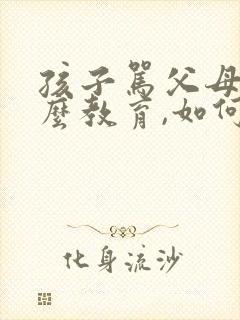 孩子罵父母
麼教育,如何
化身流沙